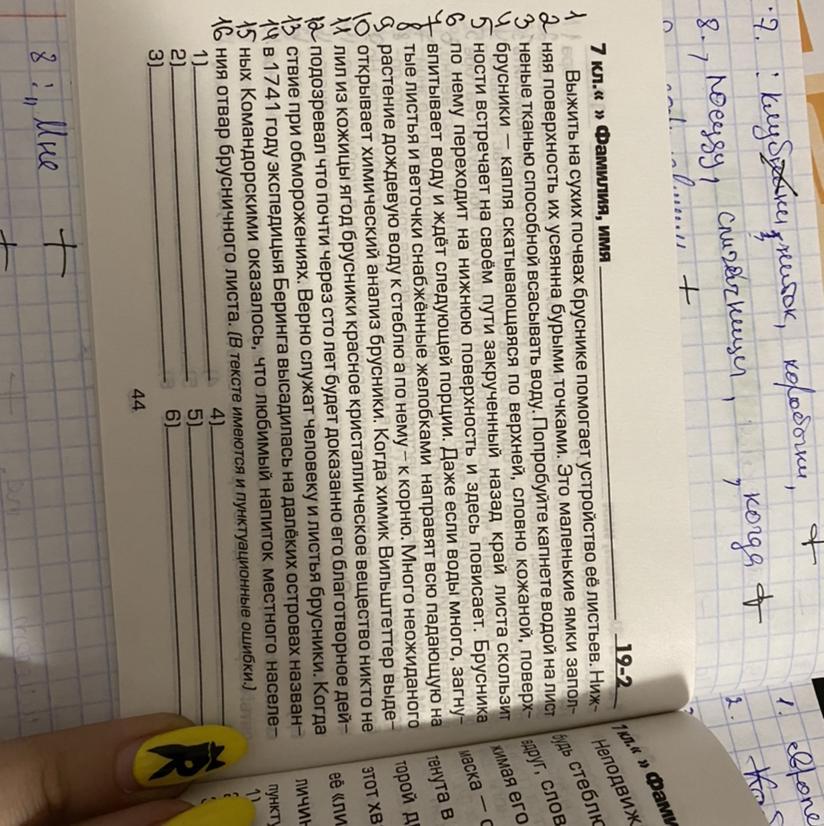 7 кл.« » Фамилия, имя 19-2
1 Выжить на сухих почвах бруснике помогает устройство её листьев. Ниж-
2 няя поверхность их усеянна бурыми точками. Это маленькие ямки запол-
3 неные тканью способной всасывать воду. Попробуйте капнете водой на лист
4 брусники — капля скатывающаяся по верхней, словно кожаной, поверх-
5 ности встречает на своём пути закрученный назад край листа скользит
6 по нему переходит на нижнюю поверхность и здесь повисает. Брусника
7 впитывает воду и ждёт следующей порции. Даже если воды много, загну-
8 тые листья и веточки снабжённые желобками направят всю падающую на
9 растение дождевую воду к стеблю а по нему – к корню. Много неожиданого
10 открывает химический анализ брусники. Когда химик Вильштеттер выде-
11 лил из кожицы ягод брусники красное кристаллическое вещество никто не
12 подозревал что почти через сто лет будет доказанно его благотворное дей-
13 ствие при обморожениях. Верно служат человеку и листья брусники. Когда
14 в 1741 году экспедицыя Беринга высадилась на далёких островах назван-
15 ных Командорскими оказалось, что любимый напиток местного населе-
16 ния отвар брусничного листа. (В тексте имеются и пунктуационные ошибки.)
1) 4)
2) 5)
3) 6)
44
7. : клуб
житок, коробочки, +
8. , посуду, , когда +
+
8 : „ Мне +
+
1.
2.
1 кл.« » Фами
Неподвиж
будь стеблю
вдруг, слов
жимая его
маска — с
тенута в
торой д
этот хв
её «ли
личин
пункту
1)